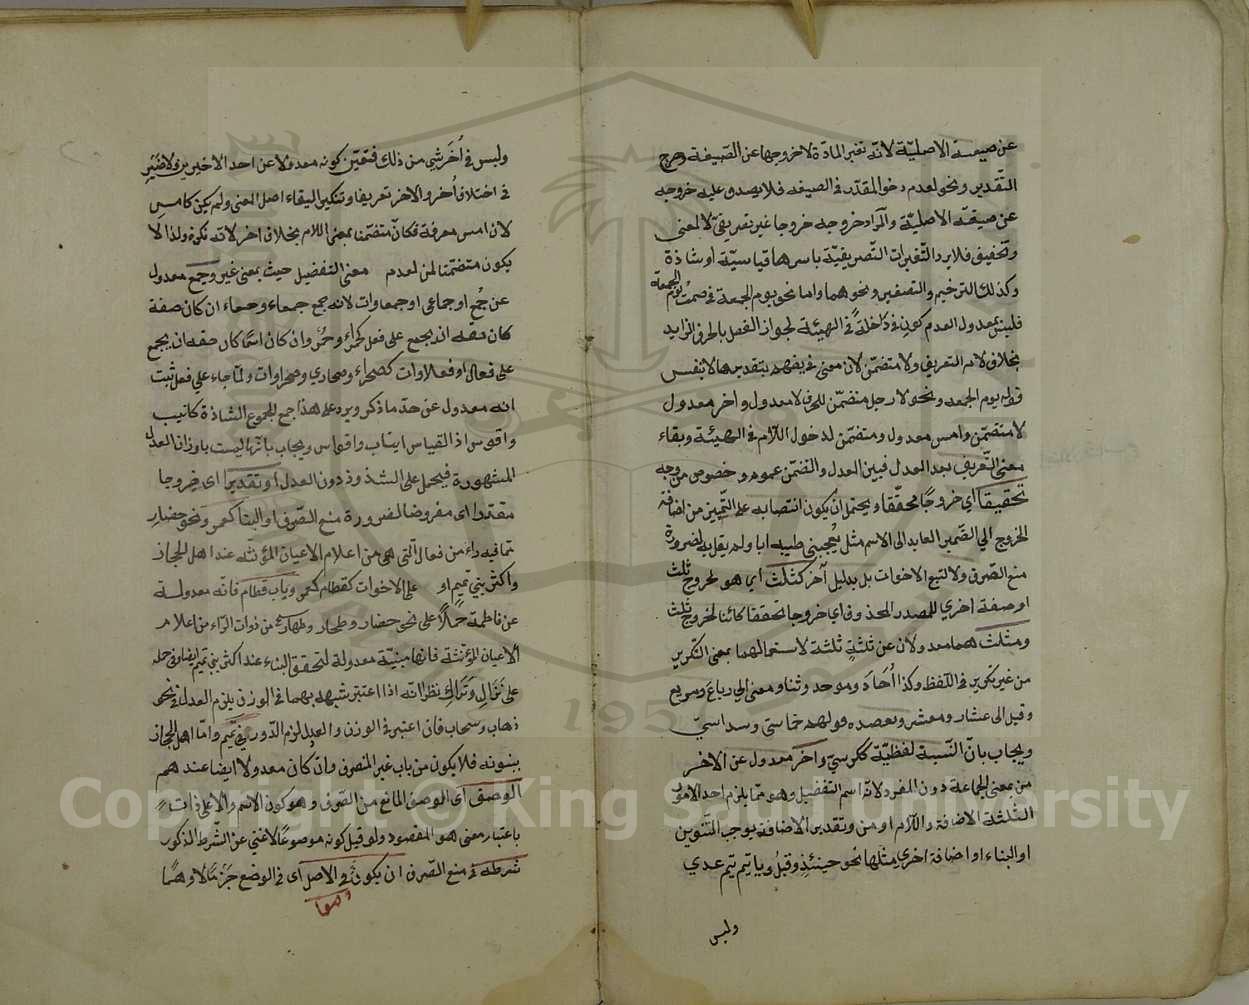 عن صيغته الاصليّة لانّه تغير المادّة لاخروجها عن الصّيغة وخرج
التّقدير ونحو لعدم دخول المقدّر في الصيغه فلا يصدق عليه خروجه
عن صيغته الاصليّة والمراد خروجه خروجا غير تصريفيّ لا لمعنى
وتخفيف فلا يرد التّغيرات التّصريفيّة باسرها قياسيّة او شاذة
وكذلك الترخيم والتصغير ونحوهما واما نحو يوم الجمعة في صمتُ يوم الجمعة
فليس بمعدول لعدم كون في داخلةً في الهيئة لجواز الفصل بالحرف الزايد
بخلاف لام التعريف ولا متضمّن لان معنى في يفهم بتقديرها لا بنفس
قوله يوم الجمعه ونحو لا رجل متضمّن للحرف لا معدول واخر معدول
لا متضمّن وامس معدول ومتضمّن لدخول اللّام في الهيئة وبقاء
معنى التّعريف بعد العدل فبين العدل والتضمّن عموم وخصوص من وجه
تحقيقاً اي خروجًا محققا ويحتمل ان يكون انتصابه على التّميز من اضافة
الخروج الي الضّمير العايد الى الاسم مثل يُعجبني طيبه ابا ولم يقل به لضرورة
منع الصّرف ولا لتبع الاخوات بل بدليل آخر كثلث اي هو لخروج ثلث
او صفة اخري للمصدر المحذوف اي خروجا تحققا كائنا لخروج ثلث
ومثلث هما معدولان عن ثلثةٍ ثلثة لاستعمالهما بمعنى التّكرير
من غير تكرير في اللّفظ وكذا اُحاد وموحد وثنا ومثنى الى رباع ومربع
وقيل الى عشار ومعشر ويعضده قولهم خماسيّ وسداسيّ
ويجاب بانّ النّسبة لفظيّة ككرسيّ واخر معدول عن الاخر
من معنى الجماعة دون المفرد لانّه اسم التفضيل وهو ممّا يلزم احد الامور
الثلثة الاضافة واللّام او من وتقدير الاضافة يوجب التّنوين
او البناء او اضافة اخري مثلها نحو حينئذٍ وقبلُ ويا تيم تيم عدي
وليس
وليس في اُخَر شي من ذلك فتعيّن كونه معدولا عن احد الاخيرين ولا ضَيرَ
في اختلاف اُخر والاخر تعريفا وتنكيرا لبقاء اصل المعنى ولم يكن كامسِ
لان امس معرفة فكان متضمّنا بمعنى اللام بخلاف اخر لانه نكرة ولذا لا
يكون متضمّنا لمن لعدم معنى التفضيل حيث بمعنى غير وجمع معدول
عن جُمْع او جماعى او جمعاوات لانه جمع جمعاء وجمعاء ان كان صفة
كان حقه ان يجمع على فعل كحمراء وحُمْر وان كان اسمًا كان حقه ان يجمع
على فعالى او فعلاوات كصحراء وصحاري وصحراوات ولمّا جاء علي فعل ثبت
انه معدول عن حدّ ما ذكر ويرد على هذا جمع الجموع الشاذة كانيب
واقوس اذ القياس انياب واقواس ويجاب بانّها ليست باوزان العدل
المشهورة فيحمل على الشذوذ دون العدل او تقديرًا اى خروجا
مقدّرا اى مفروضا لضرورة منع الصّرف او البنا كعمر ونحو حضارِ
ممّا فيه راءٌ من فعال الّتى هي من اعلام الاعيان المؤنّثه عند اهل الحجاز
واكثر بني تميم او على الاخوات كقطام كعمر وباب قطام فانّه معدولة
عن فاطمة حملًا على نحو حضار وطمار من ذوات الرّاء من اعلام
الاعيان المؤنّثة فانها مبنيّة معدولة لتحقق البناء عند اكثر بني تميم ايضا وفي حمله
على نَزَالِ وتَرَاكِ نظر لانّه اذا اعتبر شبهه بهما في الوزن يلزم العدل في نحو
ذهاب وسحاب فان اعتبر في الوزن والعدل لزم الدّور بني تميم وامّا اهل الحجاز
يبنونه فلا يكون من باب غير المنصرف وان كان معدولا ايضا عندهم
الوصف اى الوصف المانع من الصّرف وهو كون الاسم دالا على ذاتٍ
باعتبار معنى هو المقصود ولو قيل كونه موضوعًا لاغنى عن الشّرط المذكور
شرطه في منع الصّرف ان يكون في الاصل اى في الوضع